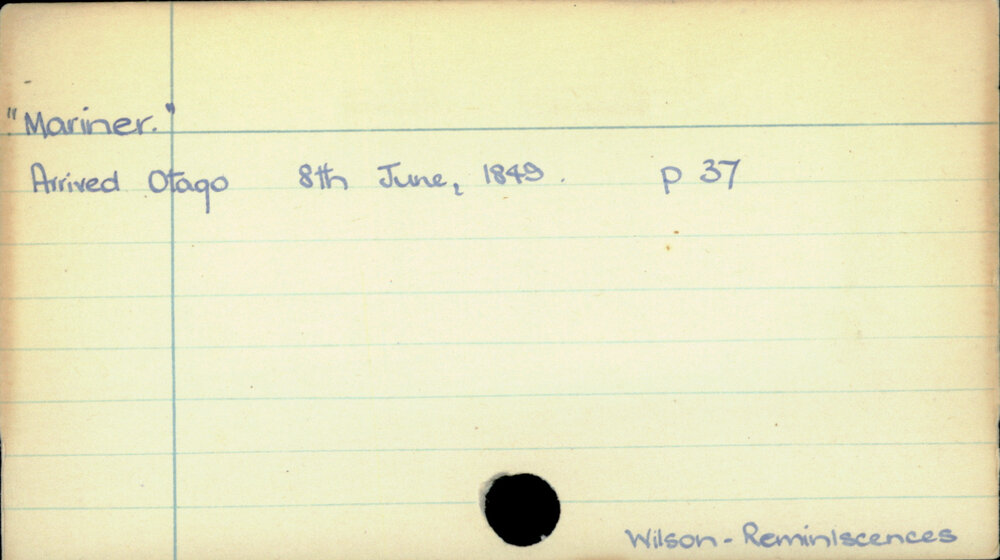 "Mariner."
Arrived Otago 8th June, 1849. p 37
Wilson - Reminiscences